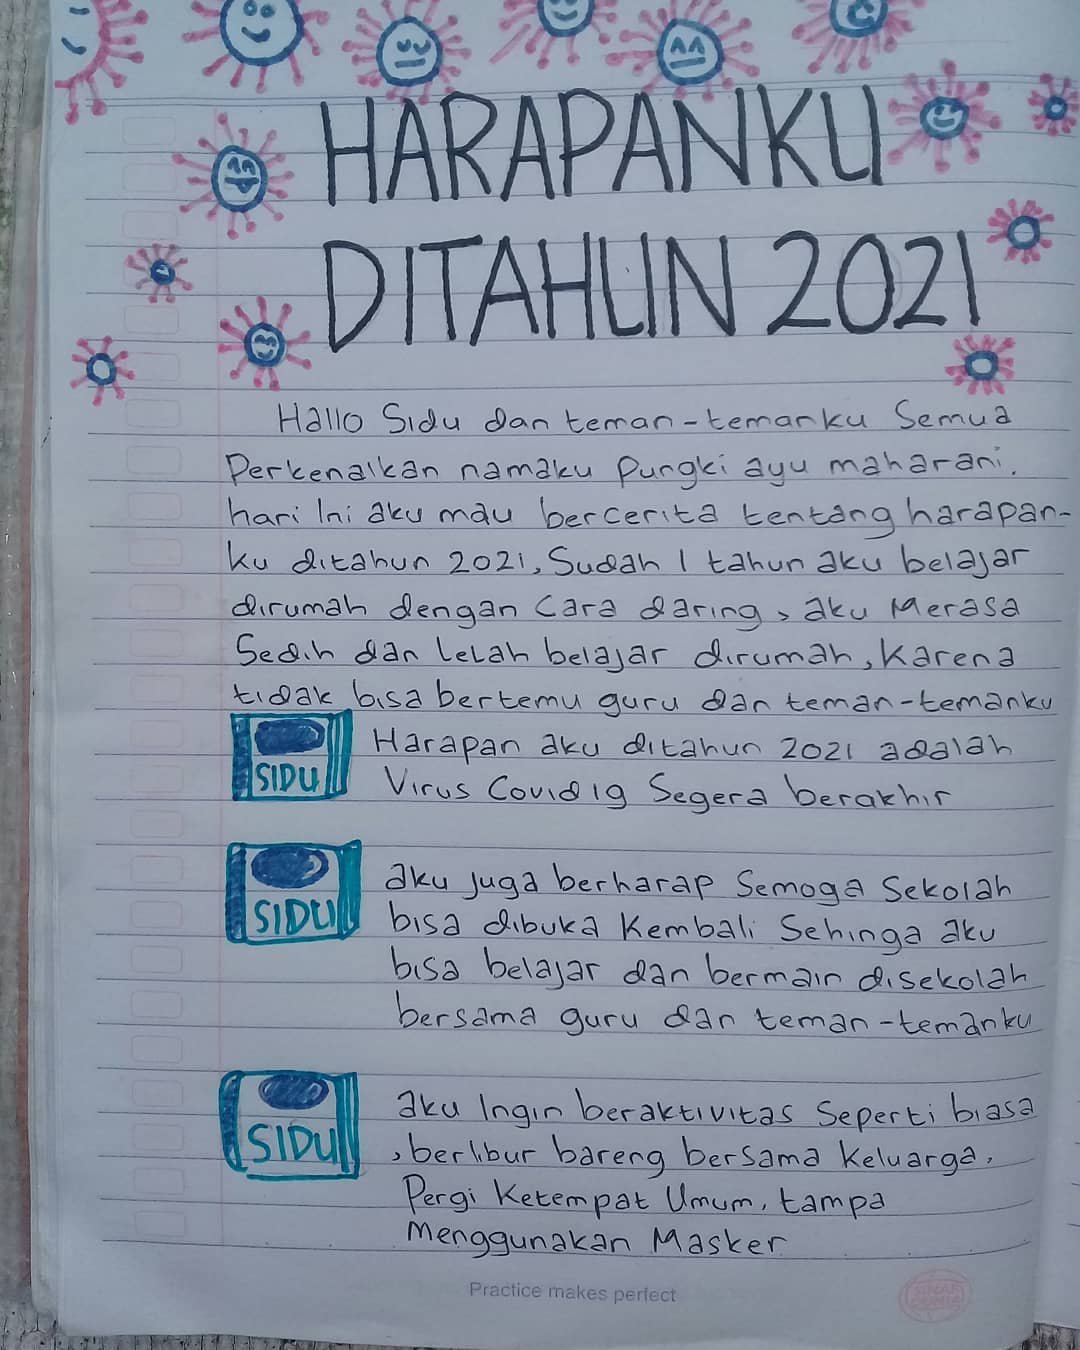 HARAPANKU
DITAHUN 2021
Hallo Sidu dan teman-temanku Semua
Perkenalkan namaku Pungki ayu maharani.
hari Ini aku mau bercerita tentang harapan-
ku ditahun 2021, Sudah 1 tahun aku belajar
dirumah dengan Cara daring, aku Merasa
Sedih dan lelah belajar dirumah, Karena
tidak bisa bertemu guru dan teman-temanku
SIDU
Harapan aku ditahun 2021 adalah
Virus Covid 19 Segera berakhir
SIDU
aku juga berharap Semoga Sekolah
bisa dibuka Kembali Sehinga aku
bisa belajar dan bermain disekolah
bersama guru dan teman-temanku
SIDU
aku Ingin beraktivitas Seperti biasa
, berlibur bareng bersama keluarga,
Pergi Ketempat Umum, tampa
Menggunakan Masker
Practice makes perfect